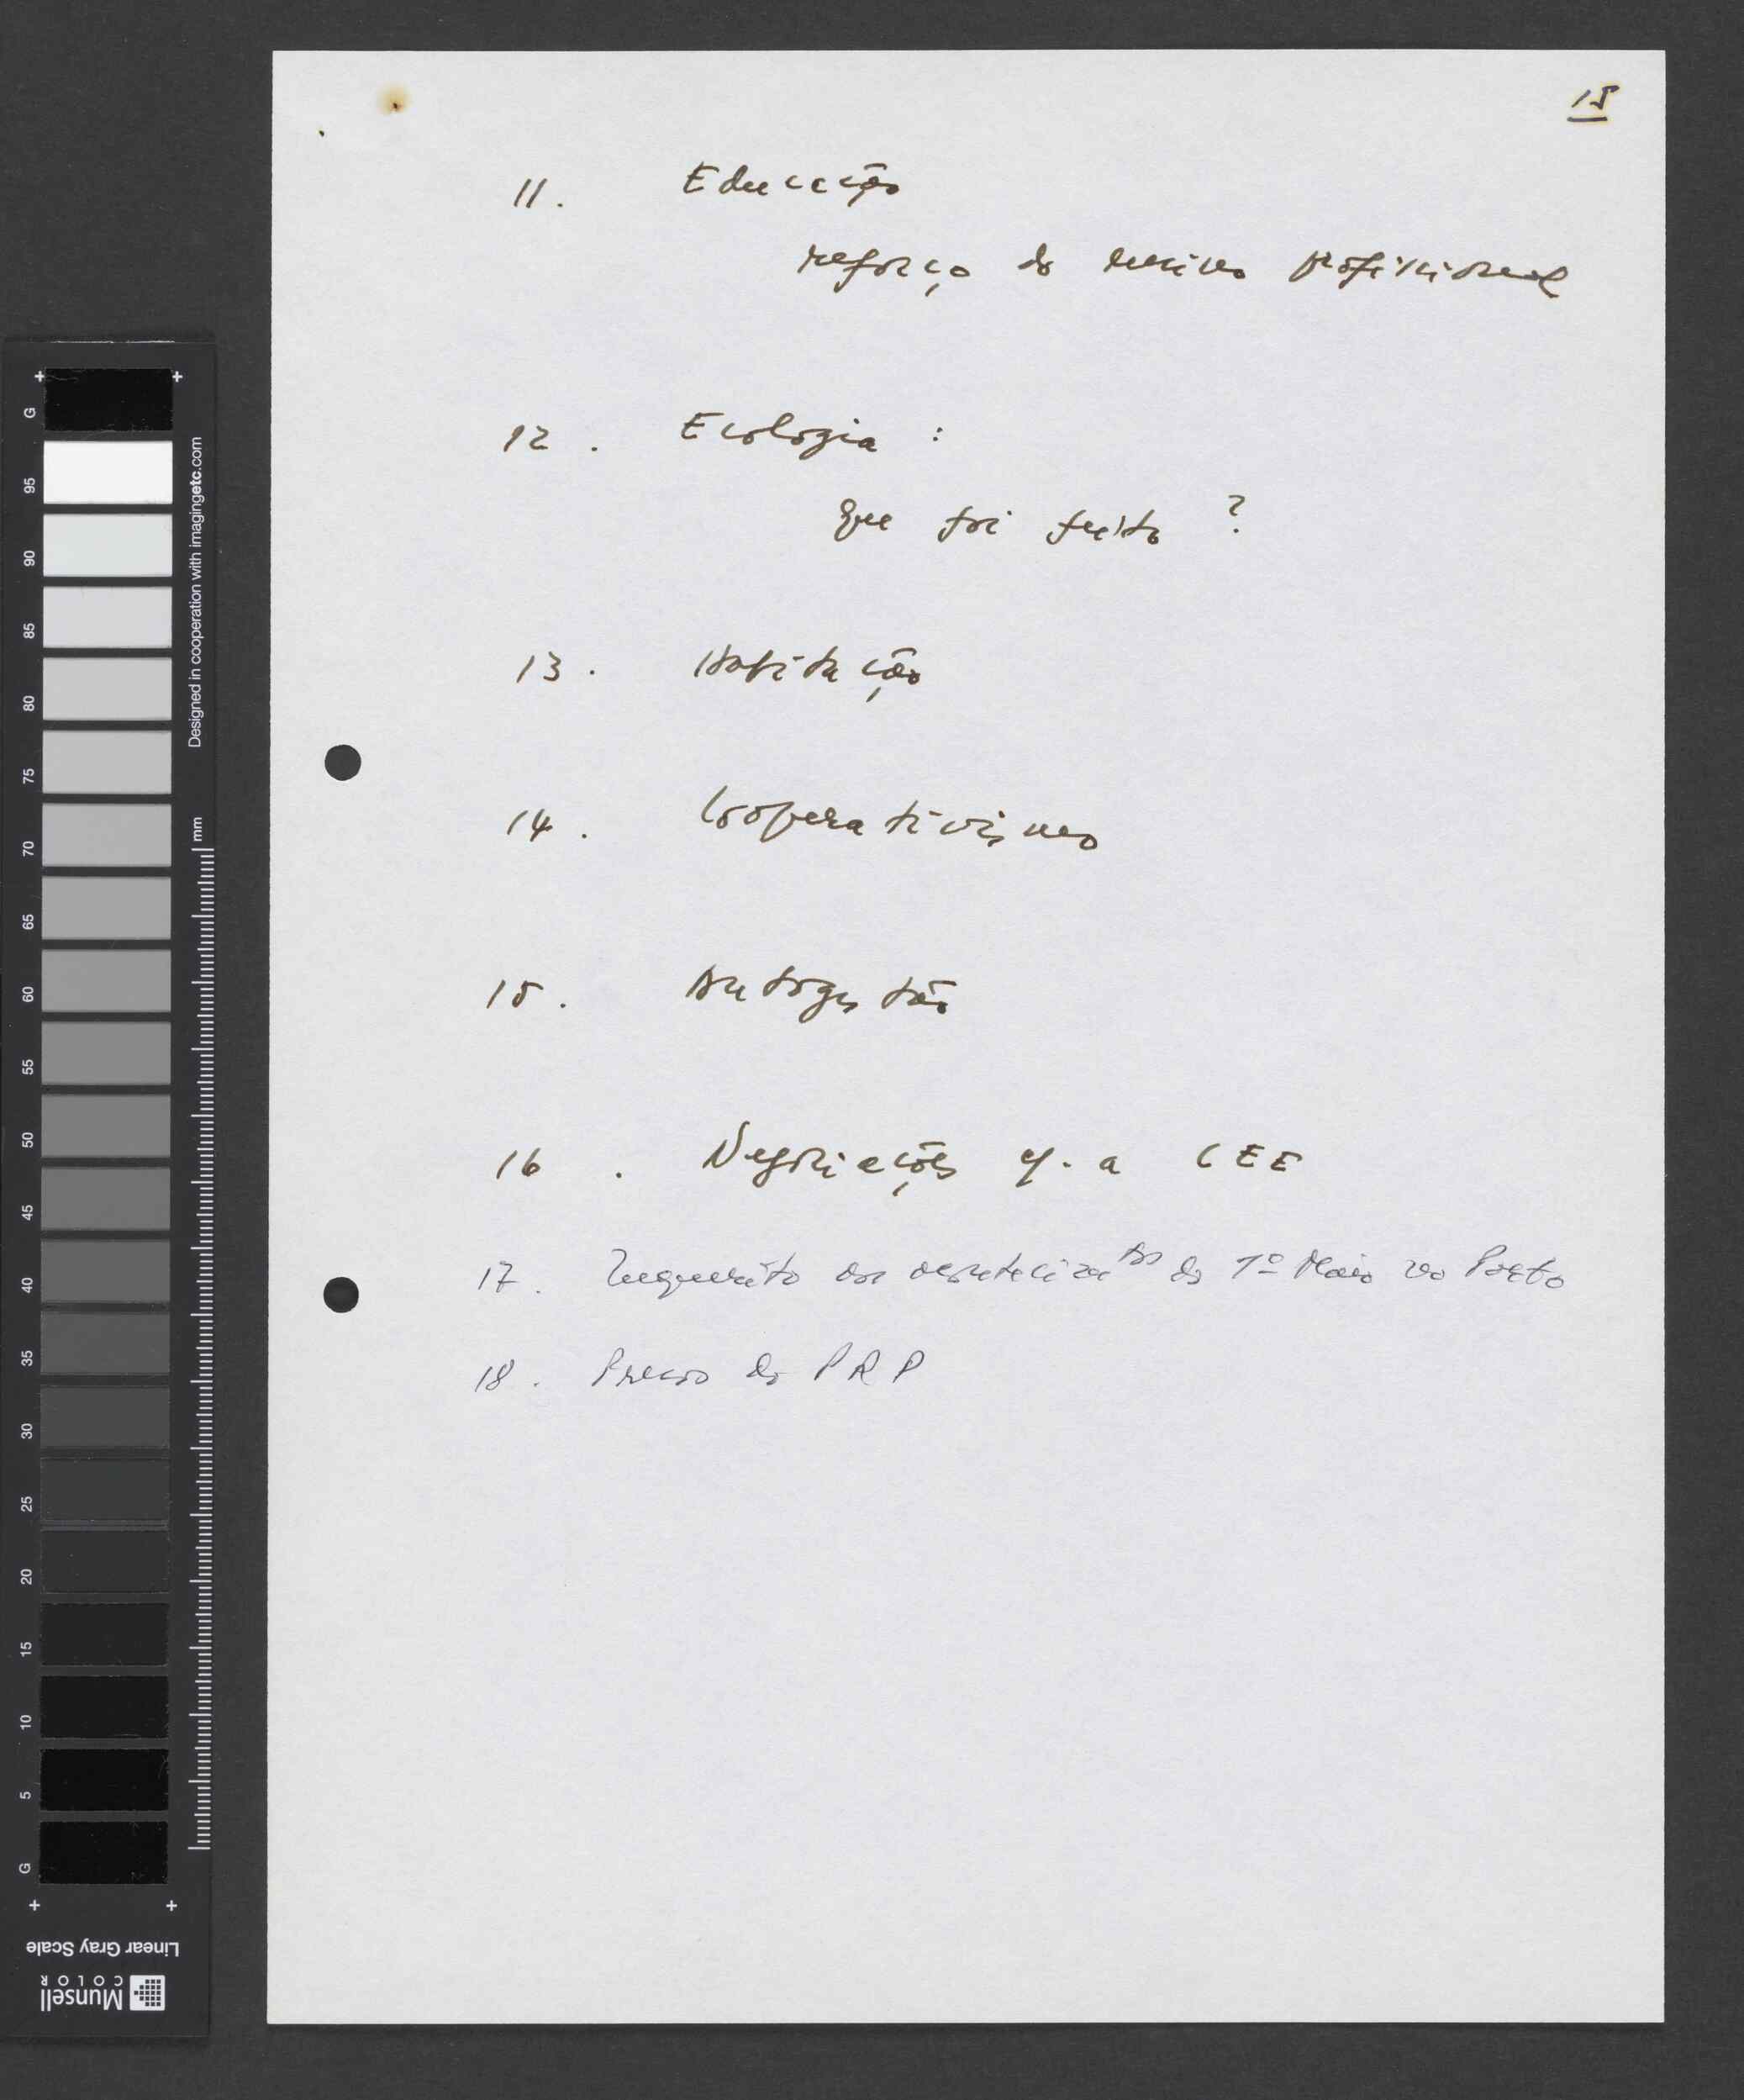 15
11. Educação
reforço do ensino profissional
12. Ecologia :
Que foi feito ?
13. Habitação
14. Cooperativismo
15. Autogestão
16. Negociações c/. a CEE
17. Inquérito aos acontecimtos do 1º Maio no Porto
18. Preços do PRP
G
95
90
85
80
75
70
65
60
55
50
45
40
35
30
25
20
15
10
5
G
Designed in cooperation with imagingetc.com
mm
Linear Gray Scale
Munsell
COLOR